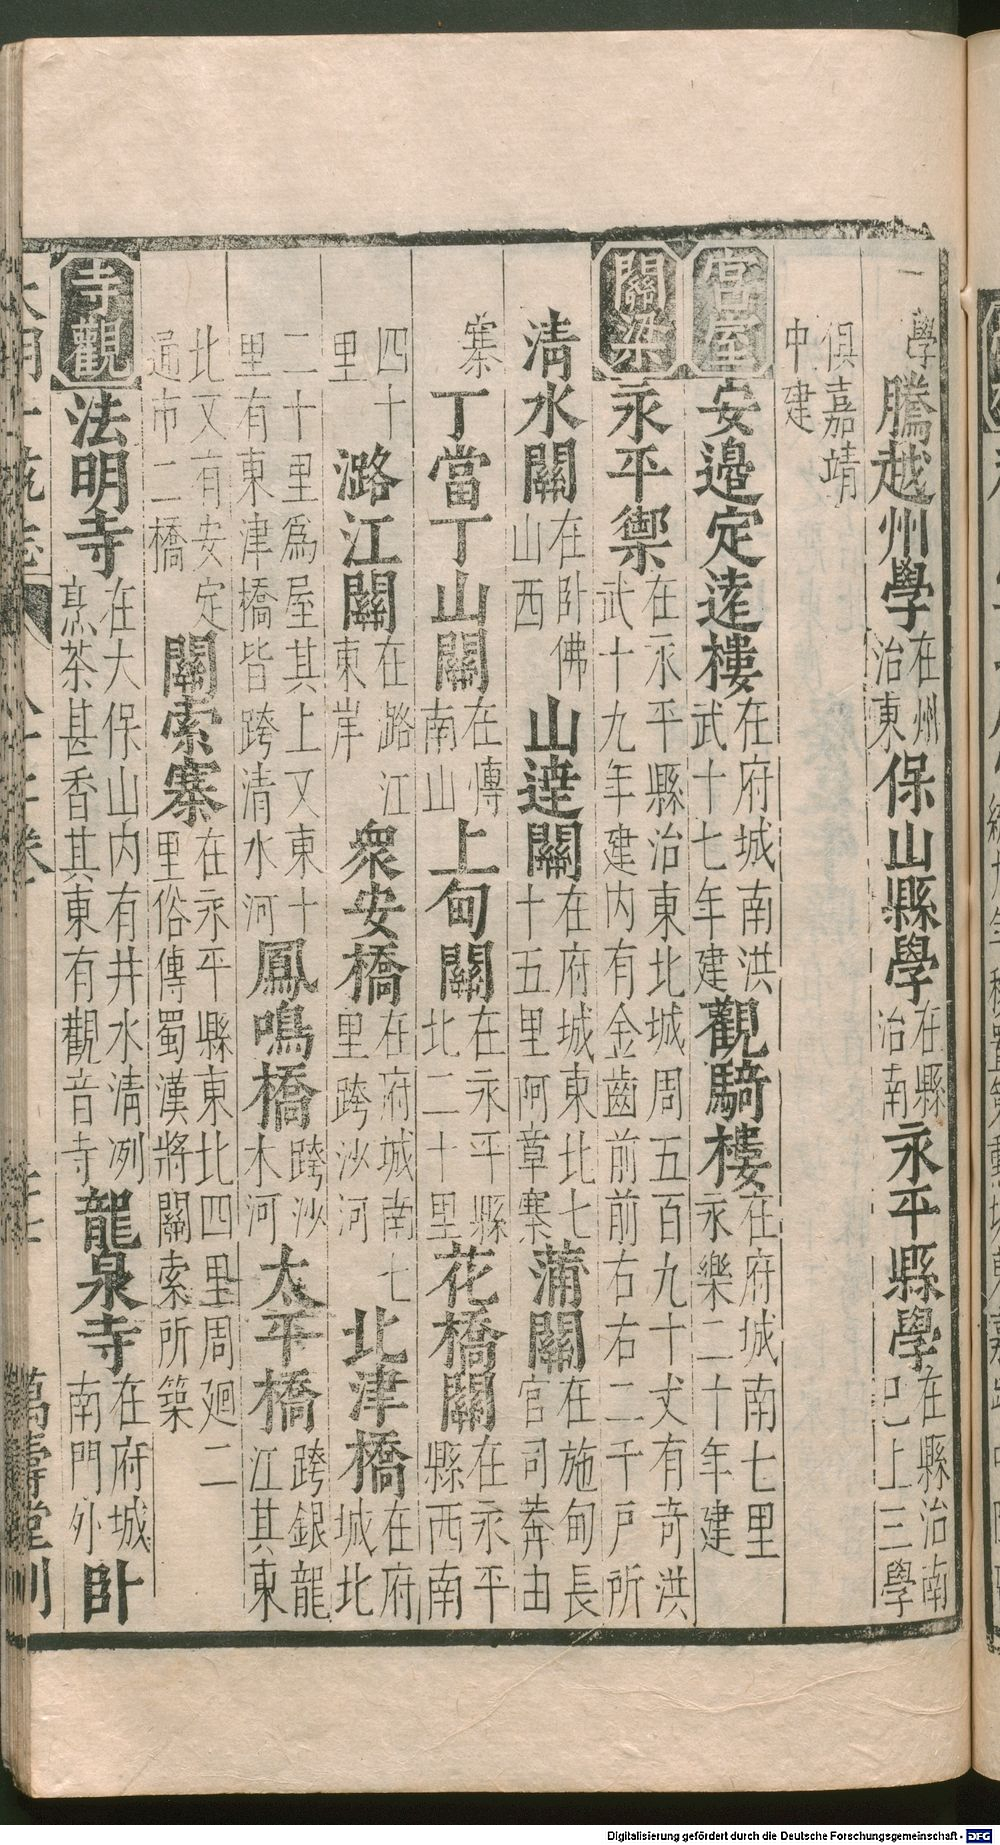 學騰越州學在州治東保山縣學在縣治南永平縣學在縣治南已上三學
俱嘉靖中建
宮室安邊定遠樓在府城南洪武十七年建觀騎樓在府城南七里永樂二十年建
關梁永平禦在永平縣治東北城周五百九十丈有奇洪武十九年建内有金齒前前右右二千戶所
清水關在卧佛山西山達關在府城東北七十五里阿章寨蒲關在施甸長官司莽由
寨丁當丁山關在傳南山上甸關在永平縣北二十里花橋關在永平縣西南
四十里潞江關在潞江東岸衆安橋在府城南七里跨沙河北津橋在府城北
二十里爲屋其上又東十里有東津橋皆跨清水河鳳鳴橋跨沙木河太平橋跨銀龍江其東
北又有安定通市二橋關索寨在永平縣東北四里周廻二里俗傳蜀漢將關索所築
寺觀法明寺在大保山内有井水清冽烹茶甚香其東有觀音寺龍泉寺在府城南門外卧
萬壽堂刊
Digitalisierung gefördert durch die Deutsche Forschungsgemeinschaft - DFG